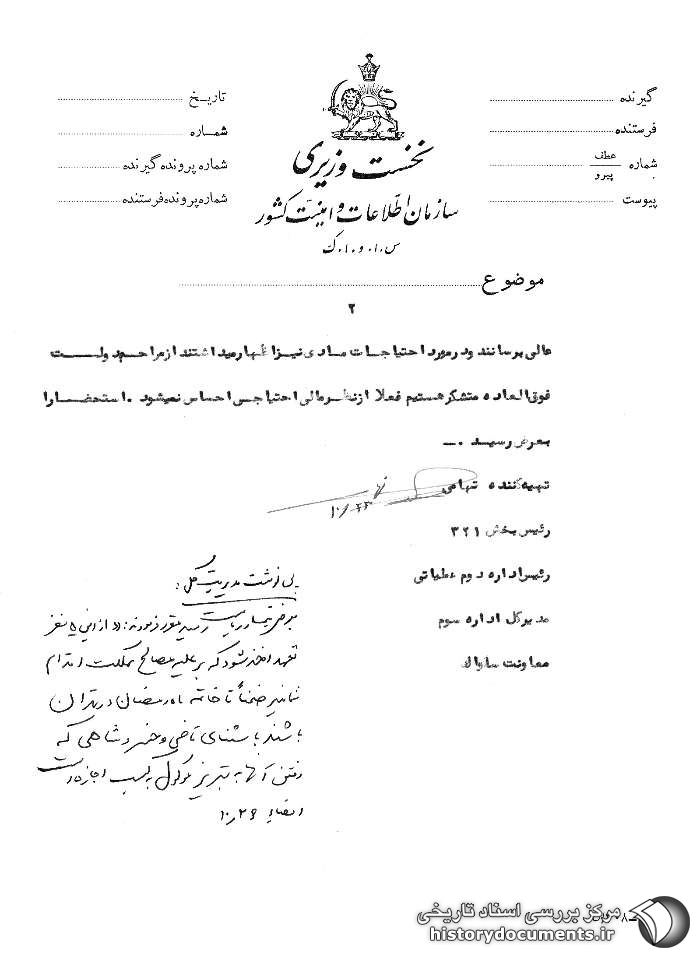 گیرنده
فرستنده
شماره عطف پیرو
پیوست
تاریخ
شماره
شماره پرونده گیرنده
شماره پرونده فرستنده
نخست وزیری
سازمان اطلاعات و امنیت کشور
س.ا.و.ا.ک
موضوع
۲
عالی برسانند و در مورد احتیاجات مادی نیز اظهار میداشتند از مراحم دولت
فوق العاده متشکر هستیم فعلا از نظر مالی احتیاجی احساس نمیشود . استحضارا
بعرض رسید .ـ
تهیه کننده تهامی
۱۰/۲۳
رئیس بخش ۳۲۱
رئیس اداره دوم عملیاتی
مدیرکل اداره سوم
معاونت ساواک
پی نوشت مدیریت کل :
بعرض تیمسار ریاست رسید مقرر فرمودند: از این ۵ نفر
تعهد اخذ شود که بر علیه مصالح مملکت اقدام
ننمایند ضمناً تا خاتمه ماه رمضان در تهران
باشند باستثنای قاضی و خسروشاهی که
رفتن آنها به تبریز موکول به کسب اجازه است
امضاء ۱۰/۲۶
مرکز بررسی اسناد تاریخی
historydocuments.ir